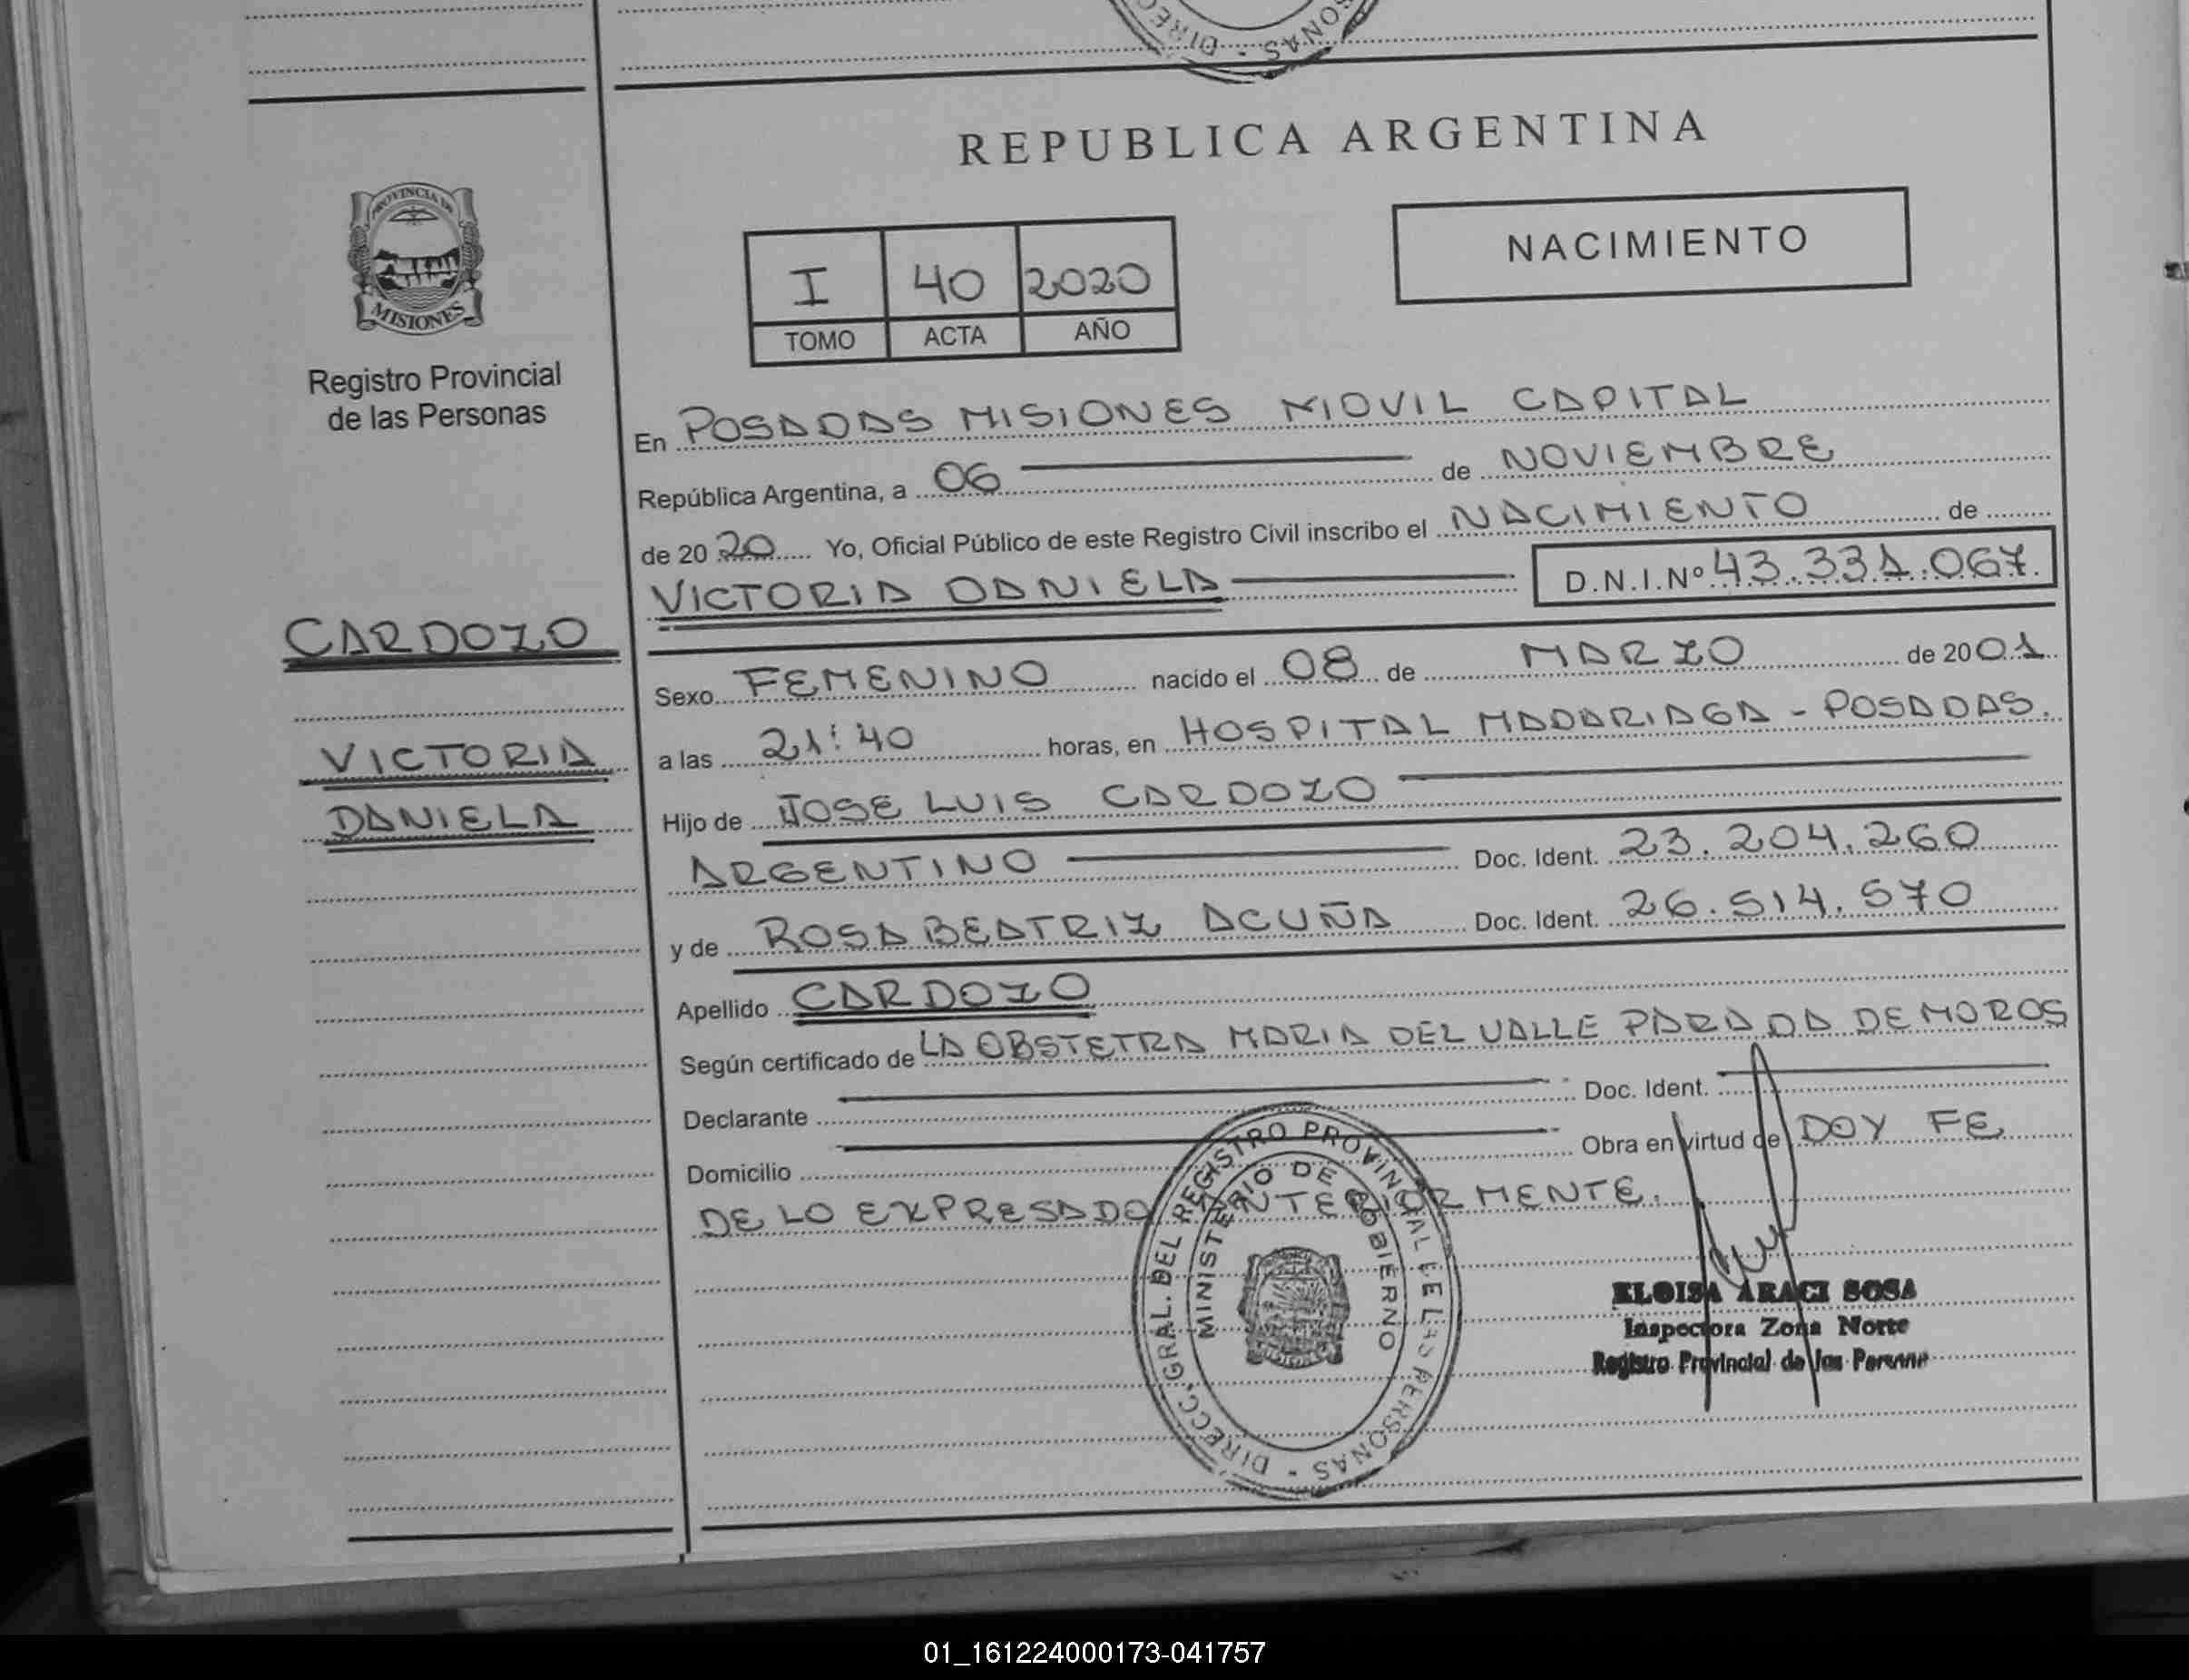 DIRECC - SONAS
REPUBLICA ARGENTINA
PROVINCIA DE
MISIONES
Registro Provincial
de las Personas
NACIMIENTO
I 40 2020
TOMO ACTA AÑO
En POSADAS MISIONES MOVIL CAPITAL
República Argentina, a 06 de NOVIEMBRE
de 20 20 Yo, Oficial Público de este Registro Civil inscribo el NACIMIENTO de
VICTORIA DANIELA D.N.I.Nº 43.331.067
CARDOZO
VICTORIA
DANIELA
Sexo FEMENINO nacido el 08 de MARZO de 20 01
a las 21:40 horas, en HOSPITAL MADARIAGA - POSADAS.
Hijo de JOSE LUIS CARDOZO
ARGENTINO Doc. Ident. 23.204.260
y de ROSA BEATRIZ ACUÑA Doc. Ident. 26.514.570
Apellido CARDOZO
Según certificado de LA OBSTETRA MARIA DEL VALLE PARADA DE MOROS
Declarante Doc. Ident.
Domicilio Obra en virtud de DOY FE
DE LO EXPRESADO ANTERIORMENTE.
DIRECC. GRAL. DEL REGISTRO PROVINCIAL DE LAS PERSONAS -
MINISTERIO DE GOBIERNO
ELOISA ARACI SOSA
Inspectora Zona Norte
Registro Provincial de las Personas
01_161224000173-041757